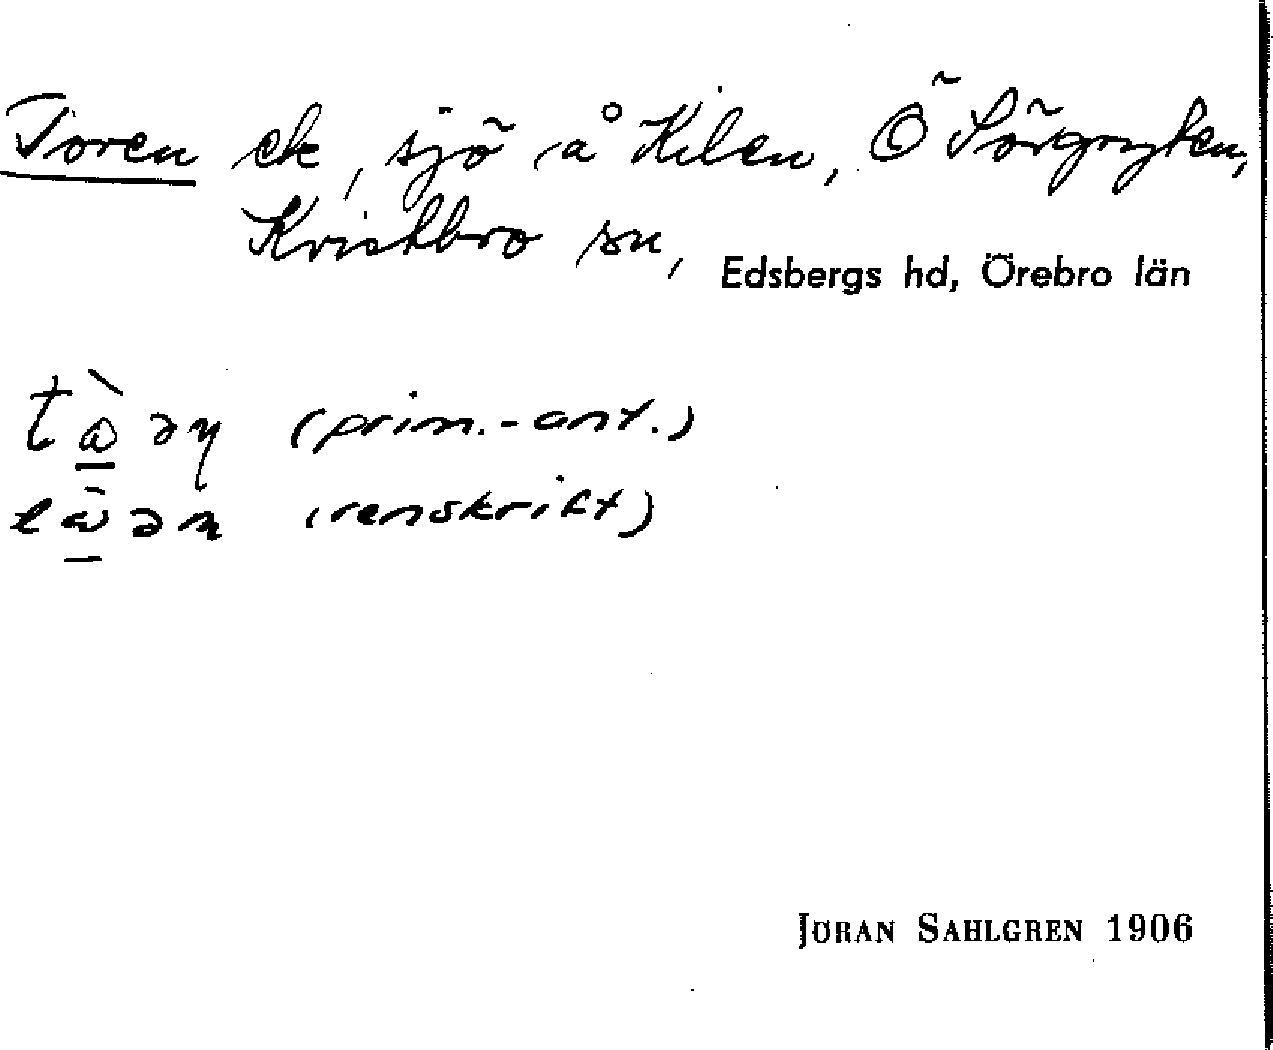 Toren ek, sjö å Kilen, Ö Sörgryten,
Kvistbro sn, Edsbergs hd, Örebro län
(prim.-ant.)
(renskrift)
JÖRAN SAHLGREN 1906